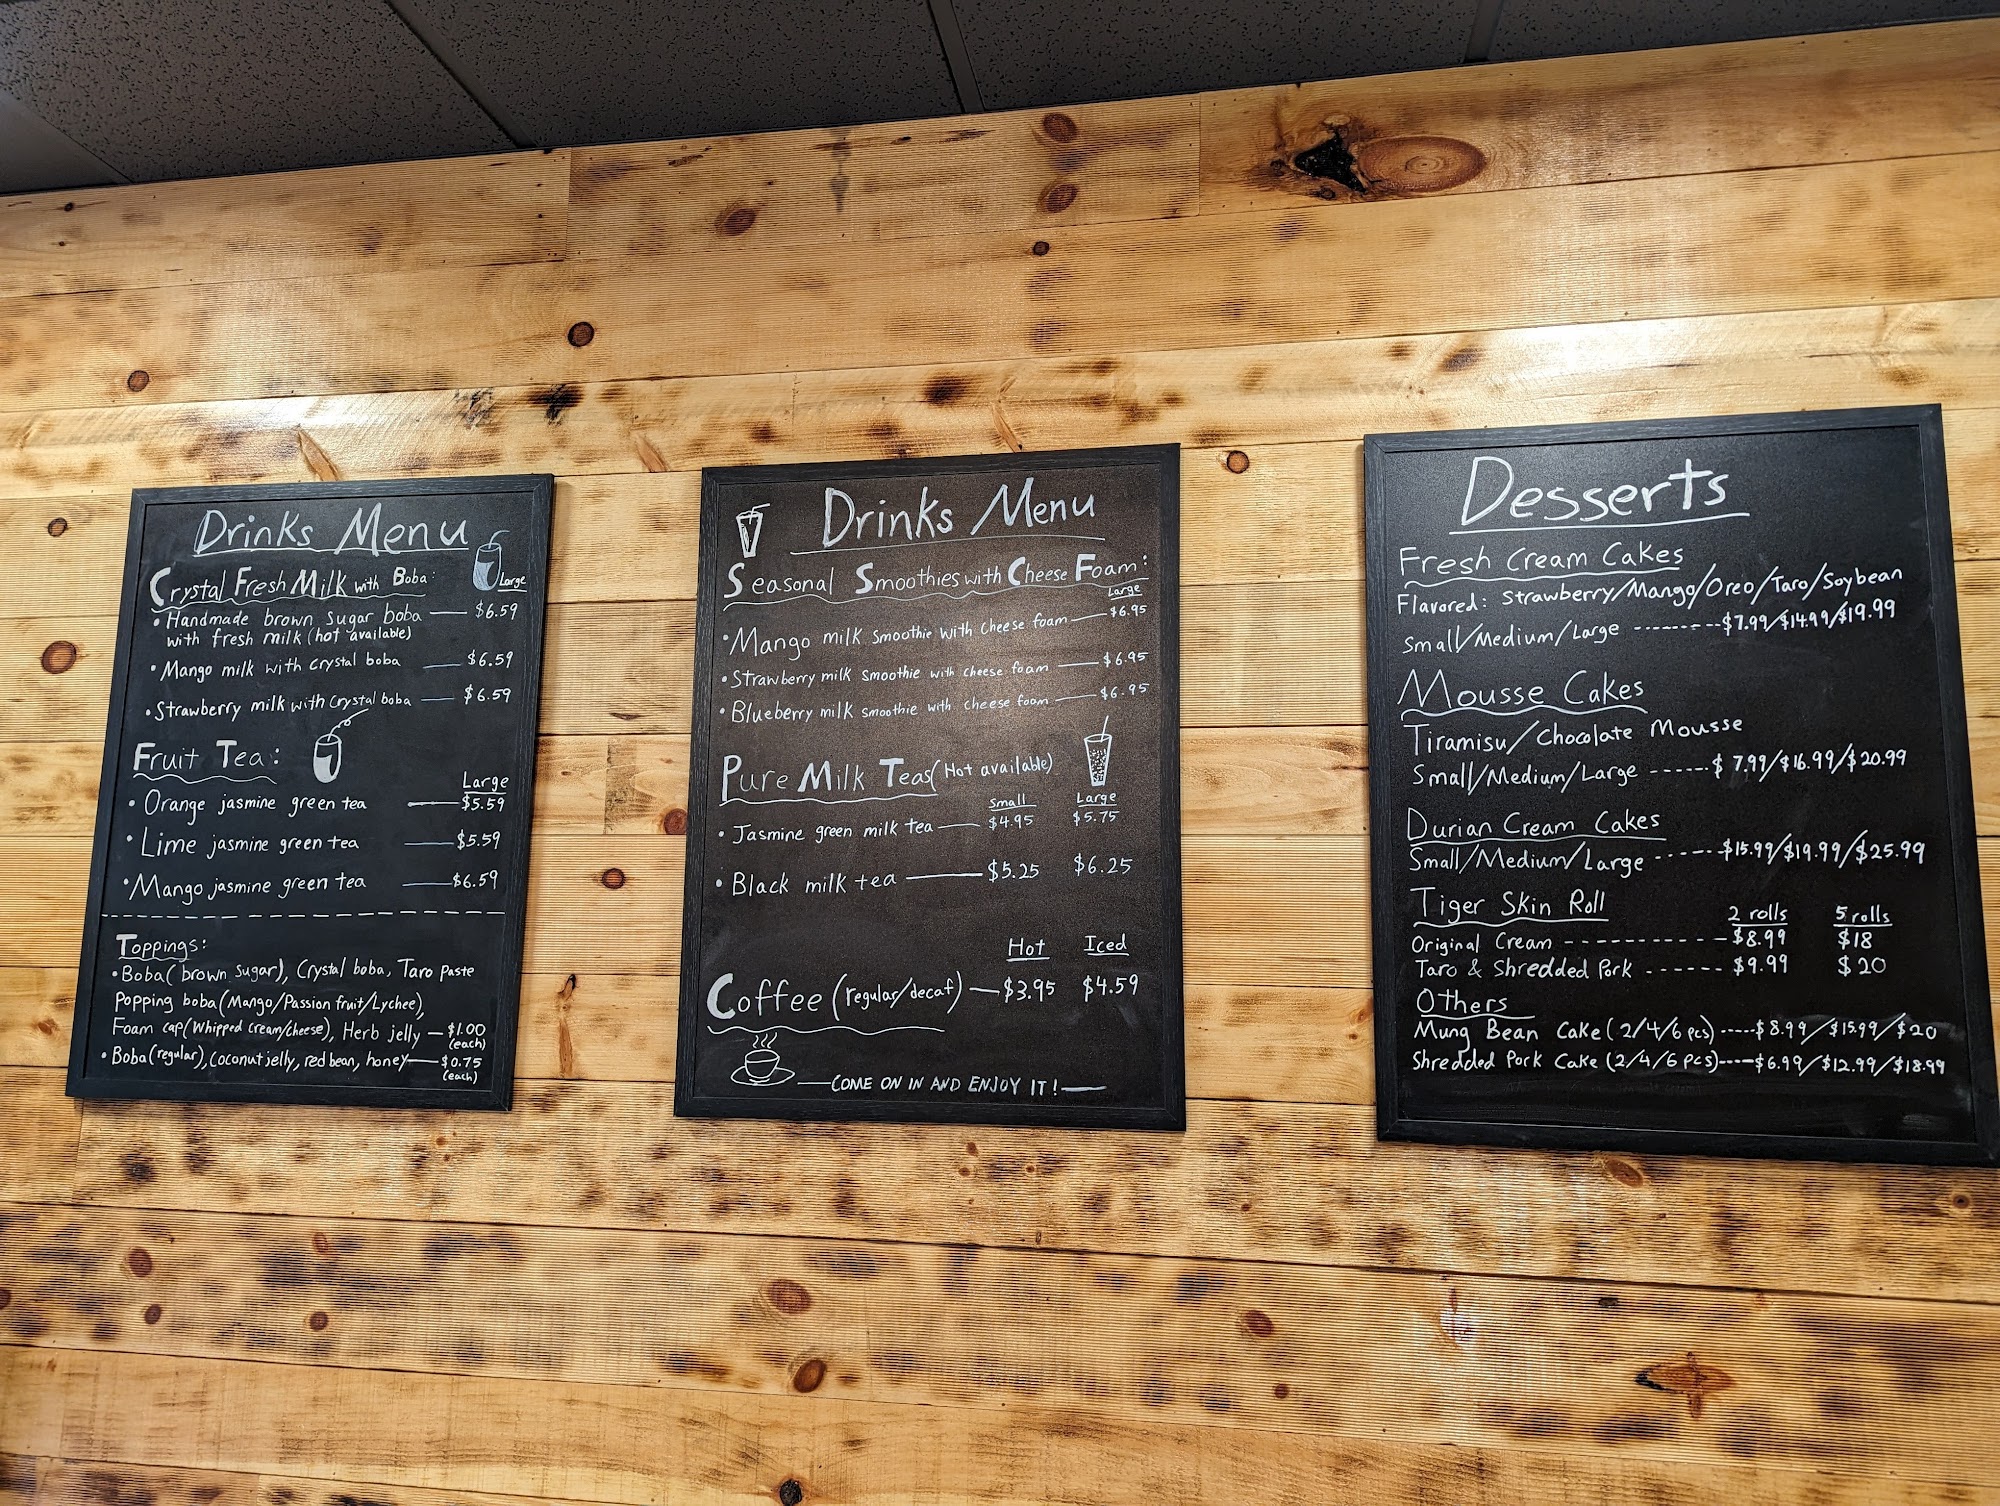 Drinks Menu
Crystal Fresh Milk with Boba:
Large
• Handmade brown sugar boba — $6.59
with fresh milk (hot available)
• Mango milk with crystal boba — $6.59
• Strawberry milk with crystal boba — $6.59
Fruit Tea:
Large
• Orange jasmine green tea — $5.59
• Lime jasmine green tea — $5.59
• Mango jasmine green tea — $6.59
Toppings:
• Boba (brown sugar), Crystal boba, Taro Paste
Popping boba (Mango/Passion fruit/Lychee),
Foam cap (Whipped cream/cheese), Herb jelly — $1.00
(each)
• Boba (regular), coconut jelly, red bean, honey — $0.75
(each)
Drinks Menu
Seasonal Smoothies with Cheese Foam:
Large
• Mango milk smoothie with cheese foam — $6.95
• Strawberry milk smoothie with cheese foam — $6.95
• Blueberry milk smoothie with cheese foam — $6.95
Pure Milk Teas (Hot available)
Small Large
• Jasmine green milk tea — $4.95 $5.75
• Black milk tea — $5.25 $6.25
Hot Iced
Coffee (regular/decaf) — $3.95 $4.59
— COME ON IN AND ENJOY IT! —
Desserts
Fresh Cream Cakes
Flavored: Strawberry/Mango/Oreo/Taro/Soybean
Small/Medium/Large -------- $7.99/$14.99/$19.99
Mousse Cakes
Tiramisu/Chocolate Mousse
Small/Medium/Large ------ $7.99/$16.99/$20.99
Durian Cream Cakes
Small/Medium/Large ------ $15.99/$19.99/$25.99
Tiger Skin Roll
2 rolls 5 rolls
Original Cream ------------ $8.99 $18
Taro & Shredded Pork ------ $9.99 $20
Others
Mung Bean Cake (2/4/6 pcs) ----- $8.99/$15.99/$20
Shredded Pork Cake (2/4/6 pcs) ---- $6.99/$12.99/$18.99